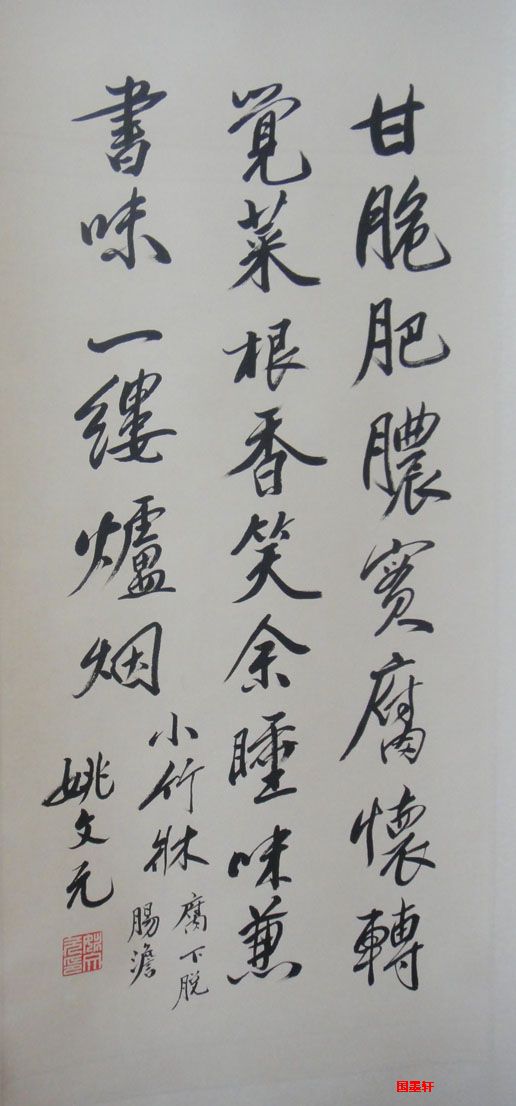 甘脆肥膿實腐懷轉
覺菜根香笑余睡味兼
書味一縷爐烟
小竹牀
腐下脱
腸澹
姚文元
国墨轩